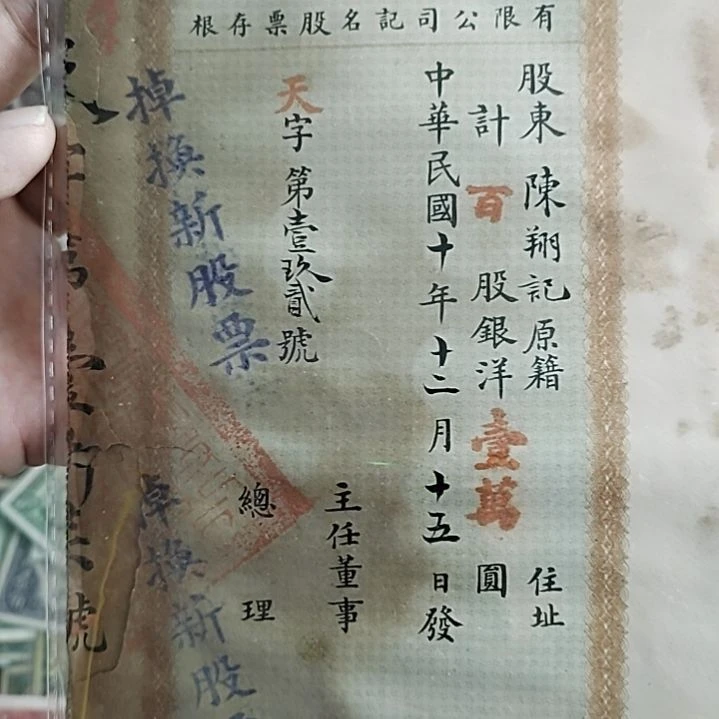 有限公司記名股票存根
股東 陳翔記 原籍 住址
計 百 股銀洋 壹萬 圓
中華民國十年十二月十五日發
主任董事
天字第壹玖貳號
總理
掉換新股票
掉換新股票
號